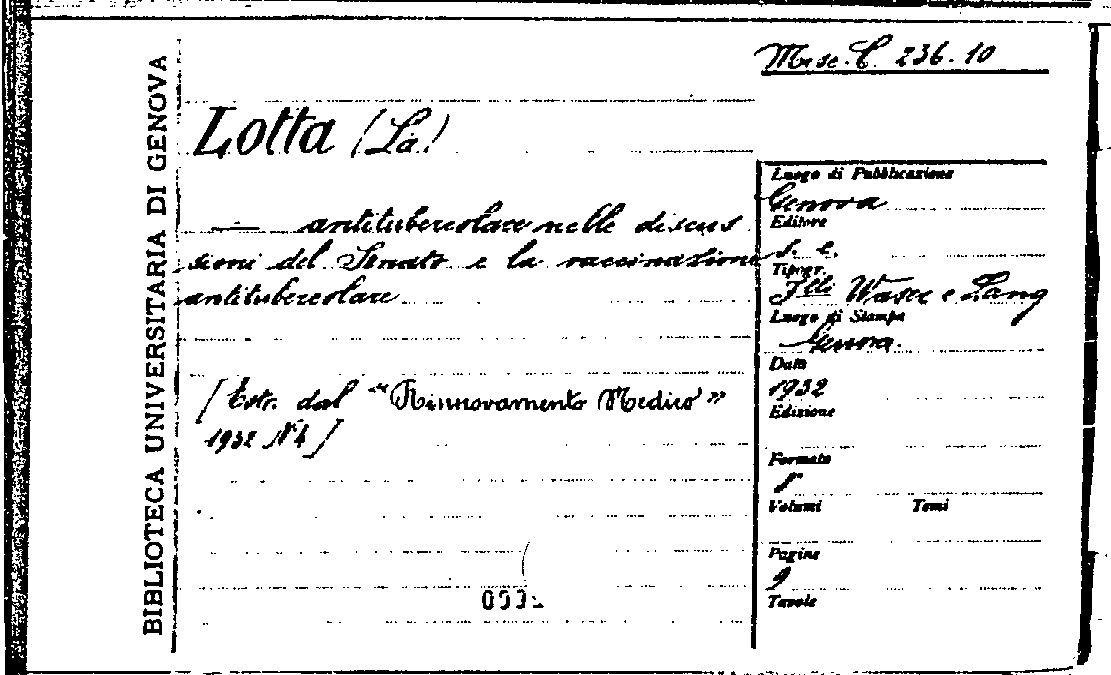 BIBLIOTECA UNIVERSITARIA DI GENOVA
Misc. C. 236.10
Lotta (La)
— antitubercolare nelle discus
sioni del Senato e la vaccinazione
antitubercolare
[Estr. dal "Rinnovamento Medico"
1932 N 4]
Luogo di Pubblicazione
Genova
Editore
s. e.
Tipogr.
Flli Waser e Lang
Luogo di Stampa
Genova.
Data
1932
Edizione
Formato
8
Volumi Tomi
Pagine
9
Tavole